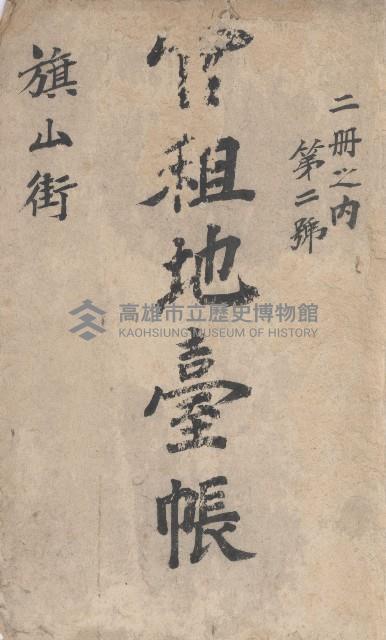 二冊之內
第二號
官租地臺帳
旗山街
高雄市立歷史博物館
KAOHSIUNG MUSEUM OF HISTORY